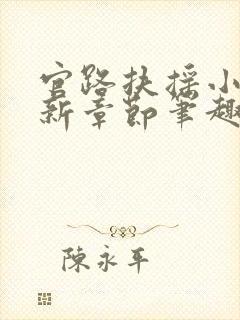 官路扶摇小
新章節筆趣
陳永平